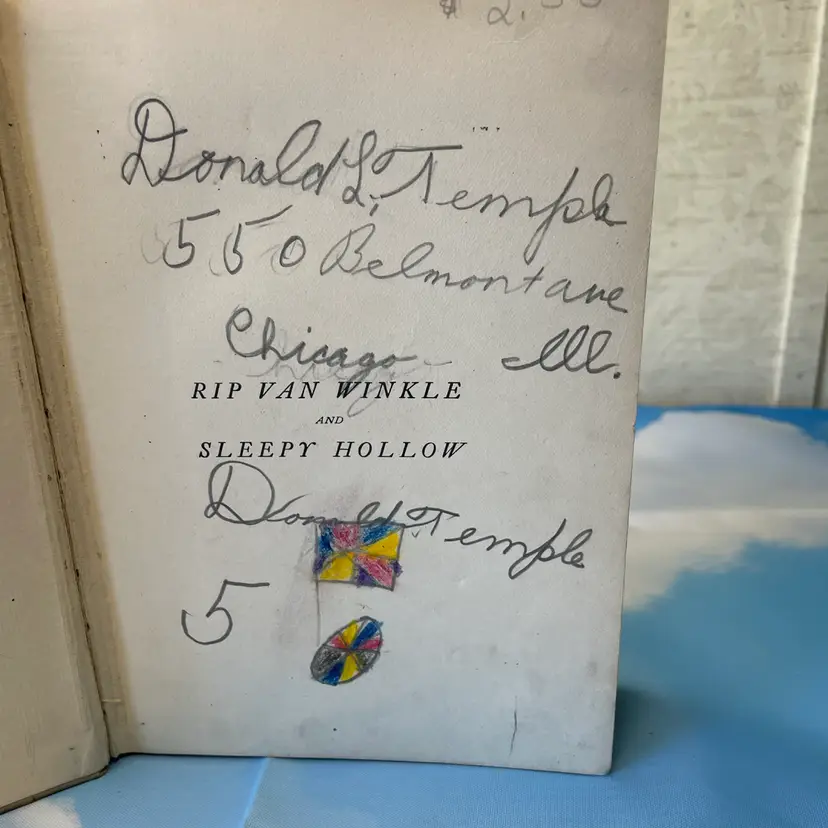 $ 2.50
Donald L. Temple
550 Belmont ave
Chicago Ill.
RIP VAN WINKLE
AND
SLEEPY HOLLOW
Donald Temple
5